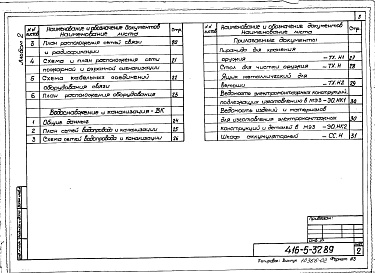 Альбом 2
3
№№ листов
Наименование и обозначение документов
Наименование листа
Стр.
3 План расположения сетей связи 20
и радиофикации
4 Схема и план расположения сети 21
пожарной и охранной сигнализации
5 Схема кабельных соединений 22
оборудования связи
6 План расположения оборудования 23
Водоснабжение и канализация - ВК
1 Общие данные 24
2 План сетей водопровода и канализации 25
3 Схема сетей водопровода и канализации 26
№№ листов
Наименование и обозначение документов
Наименование листа
Стр.
Прилагаемые документы:
Пирамида для хранения
оружия - ТХ.Н1 27
Стол для чистки оружия - ТХ.Н 28
Ящик металлический для
ветоши - ТХ.Н2 29
Ведомость электромонтажных конструкций,
подлежащих изготовлению в МЭЗ - ЭО.НК1 30
Ведомость изделий и материалов
для изготовления электромонтажных 30
конструкций и деталей в МЭЗ - ЭО.НК2
Шкаф аккумуляторный - СС.Н 31
Привязан:
Инв. №
416-5-32.89
Лист
2
Формат А3